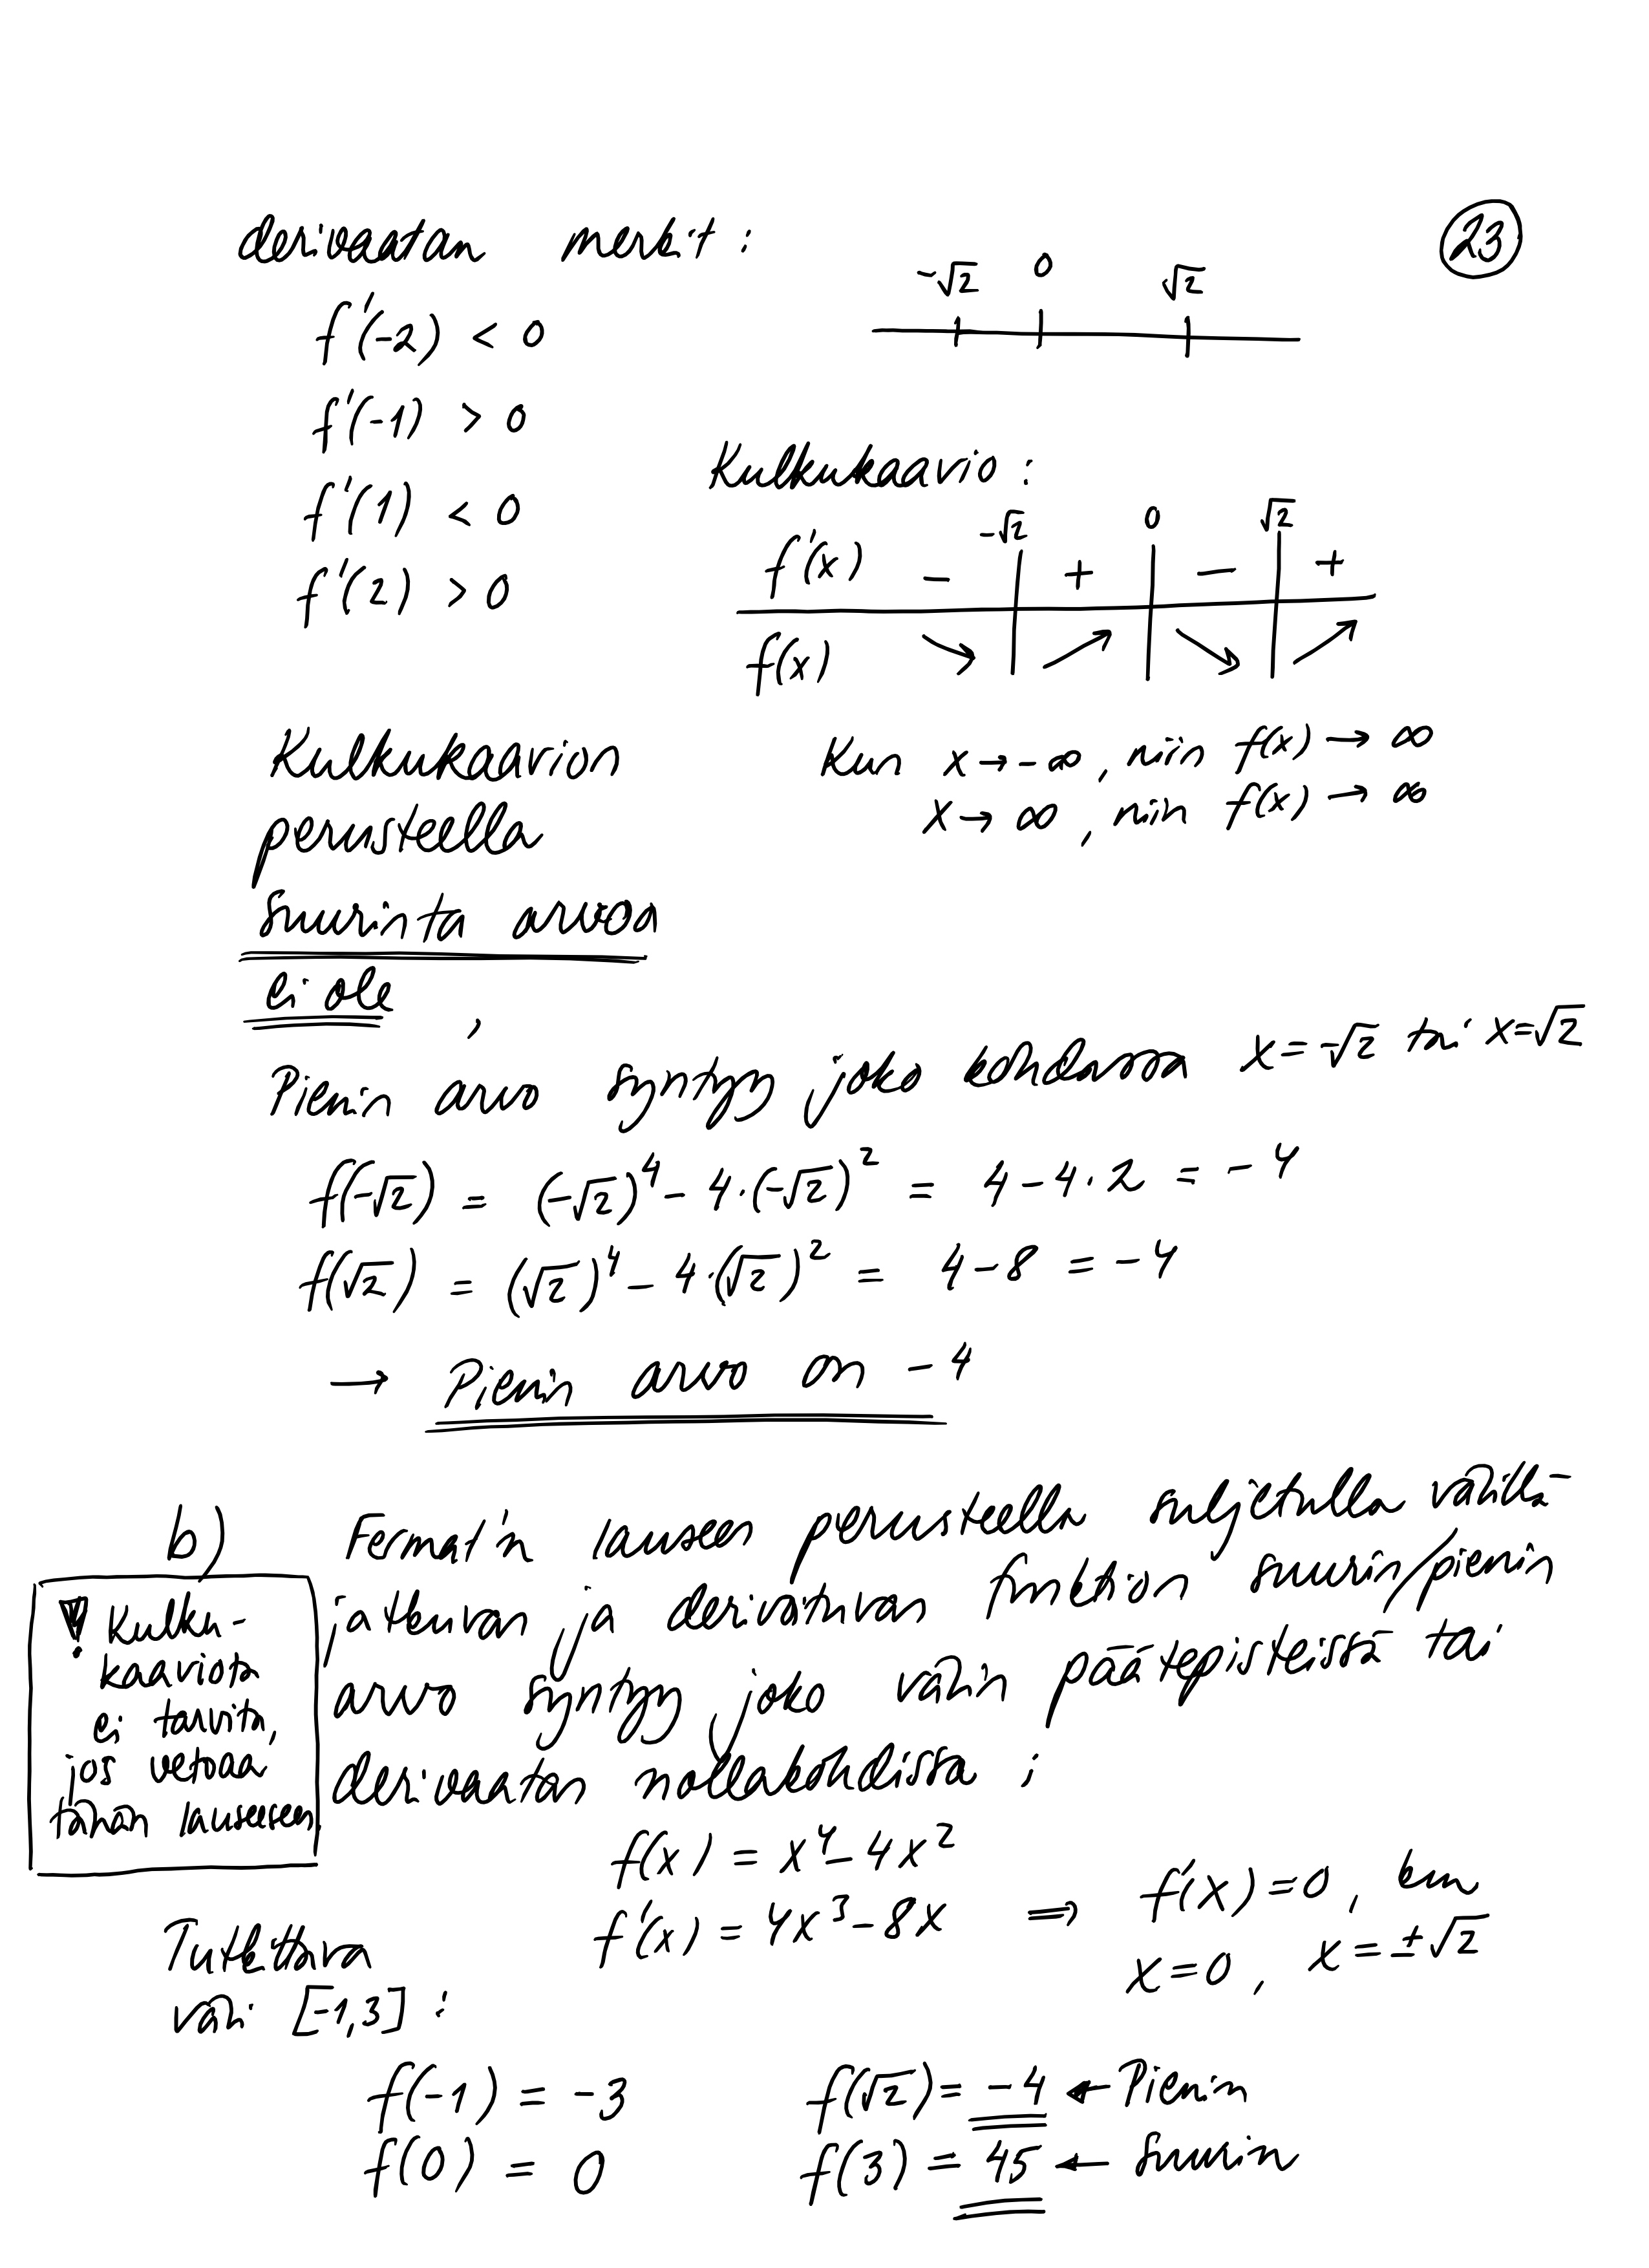 derivaatan merkit :
23
-√2 0 √2
f'(-2) < 0
f'(-1) > 0
f'(1) < 0
f'(2) > 0
Kulkukaavio :
-√2 0 √2
f'(x) - + - +
f(x) ↘ ↗ ↘ ↗
Kun x → -∞, niin f(x) → ∞
x → ∞, niin f(x) → ∞
Kulkukaavion
perusteella
suurinta arvoa
ei ole ,
Pienin arvo syntyy joko kohdassa x = -√2 tai x = √2
f(-√2) = (-√2)⁴ - 4·(-√2)² = 4 - 4·2 = -4
f(√2) = (√2)⁴ - 4·(√2)² = 4 - 8 = -4
→ Pienin arvo on -4
b) Fermat'n lauseen perusteella suljetulla välillä
jatkuvan ja derivoituvan funktion suurin/pienin
arvo syntyy joko välin päätepisteissä tai
derivaatan nollakohdissa ;
! Kulku-
kaaviota
ei tarvita,
jos vetoaa
tähän lauseeseen.
f(x) = x⁴ - 4x²
f'(x) = 4x³ - 8x ⇒ f'(x) = 0, kun
x = 0, x = ±√2
Tutkittava
väli [-1,3] :
f(-1) = -3
f(0) = 0
f(√2) = -4 ← Pienin
f(3) = 45 ← Suurin